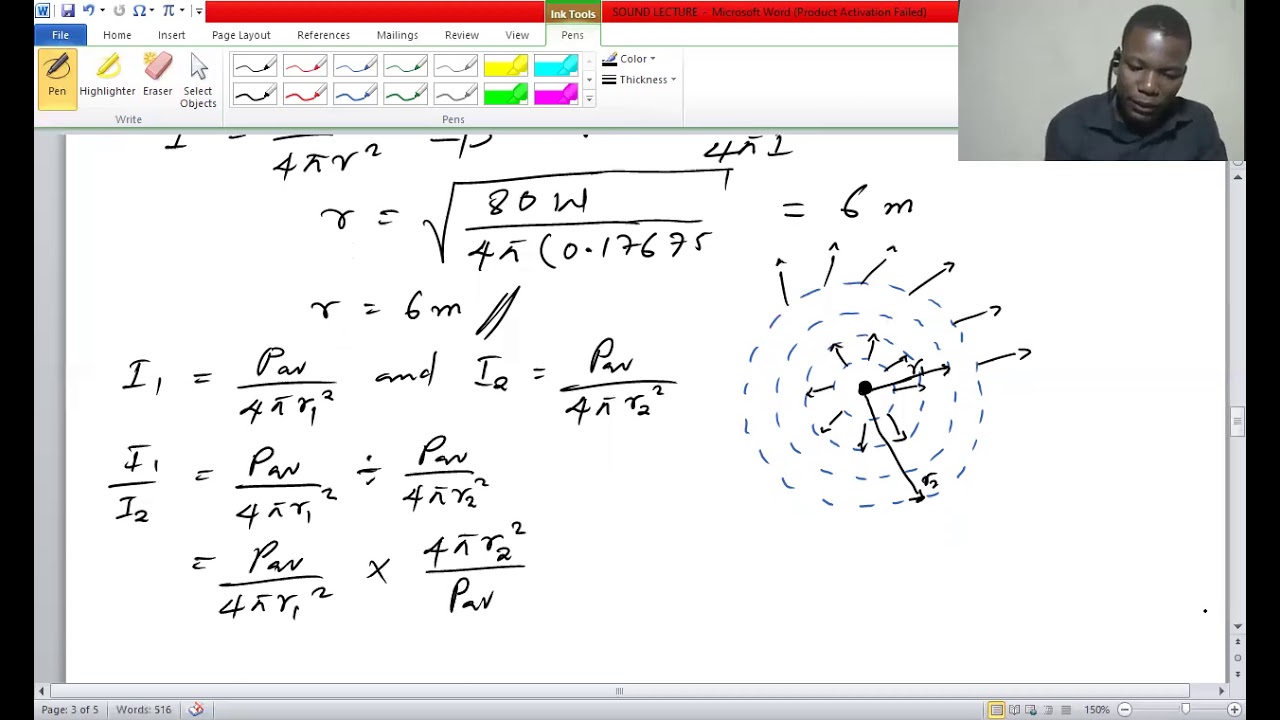 Ink Tools
SOUND LECTURE - Microsoft Word (Product Activation Failed)
File Home Insert Page Layout References Mailings Review View Pens
Pen Highlighter Eraser Select Objects
Color
Thickness
Write Pens
4πr² 4πI
r = √(80W / 4π(0.17675) = 6 m
r = 6m
I₁ = Pav / 4πr₁² and I₂ = Pav / 4πr₂²
I₁ / I₂ = Pav / 4πr₁² ÷ Pav / 4πr₂²
= Pav / 4πr₁² × 4πr₂² / Pav
r₁
r₂
Page: 3 of 5 Words: 516 150%